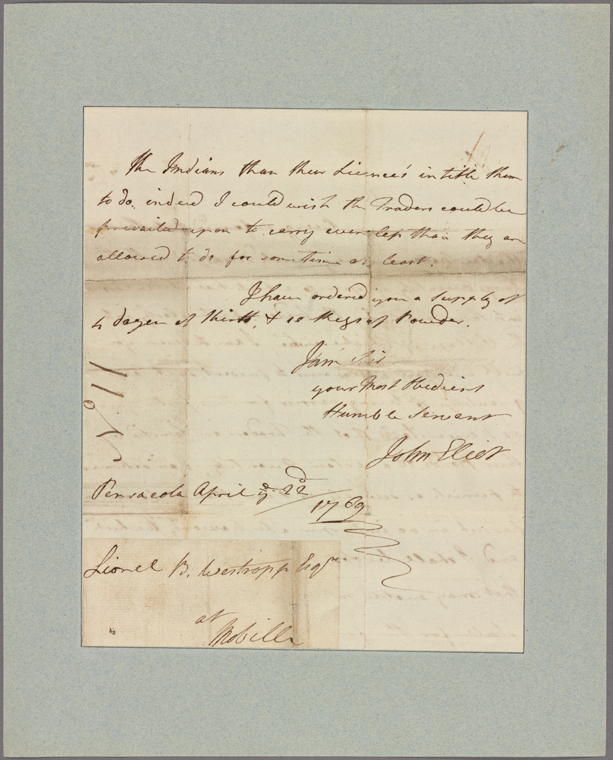 the Indians than their Licence's intitle them
to do, indeed I could wish the Traders could be
prevailed upon to carry even less than they are
allowed to do for sometime at least.
I have ordered you a supply of
4 dozen of Shirts, & 10 Kegs of Powder.
I am Sir
your Most Obedient
Humble Servant
John Eliot
Pensacola April ye 22d
1769
No 11
Lionel B. Westropp Esqr
at
Mobille